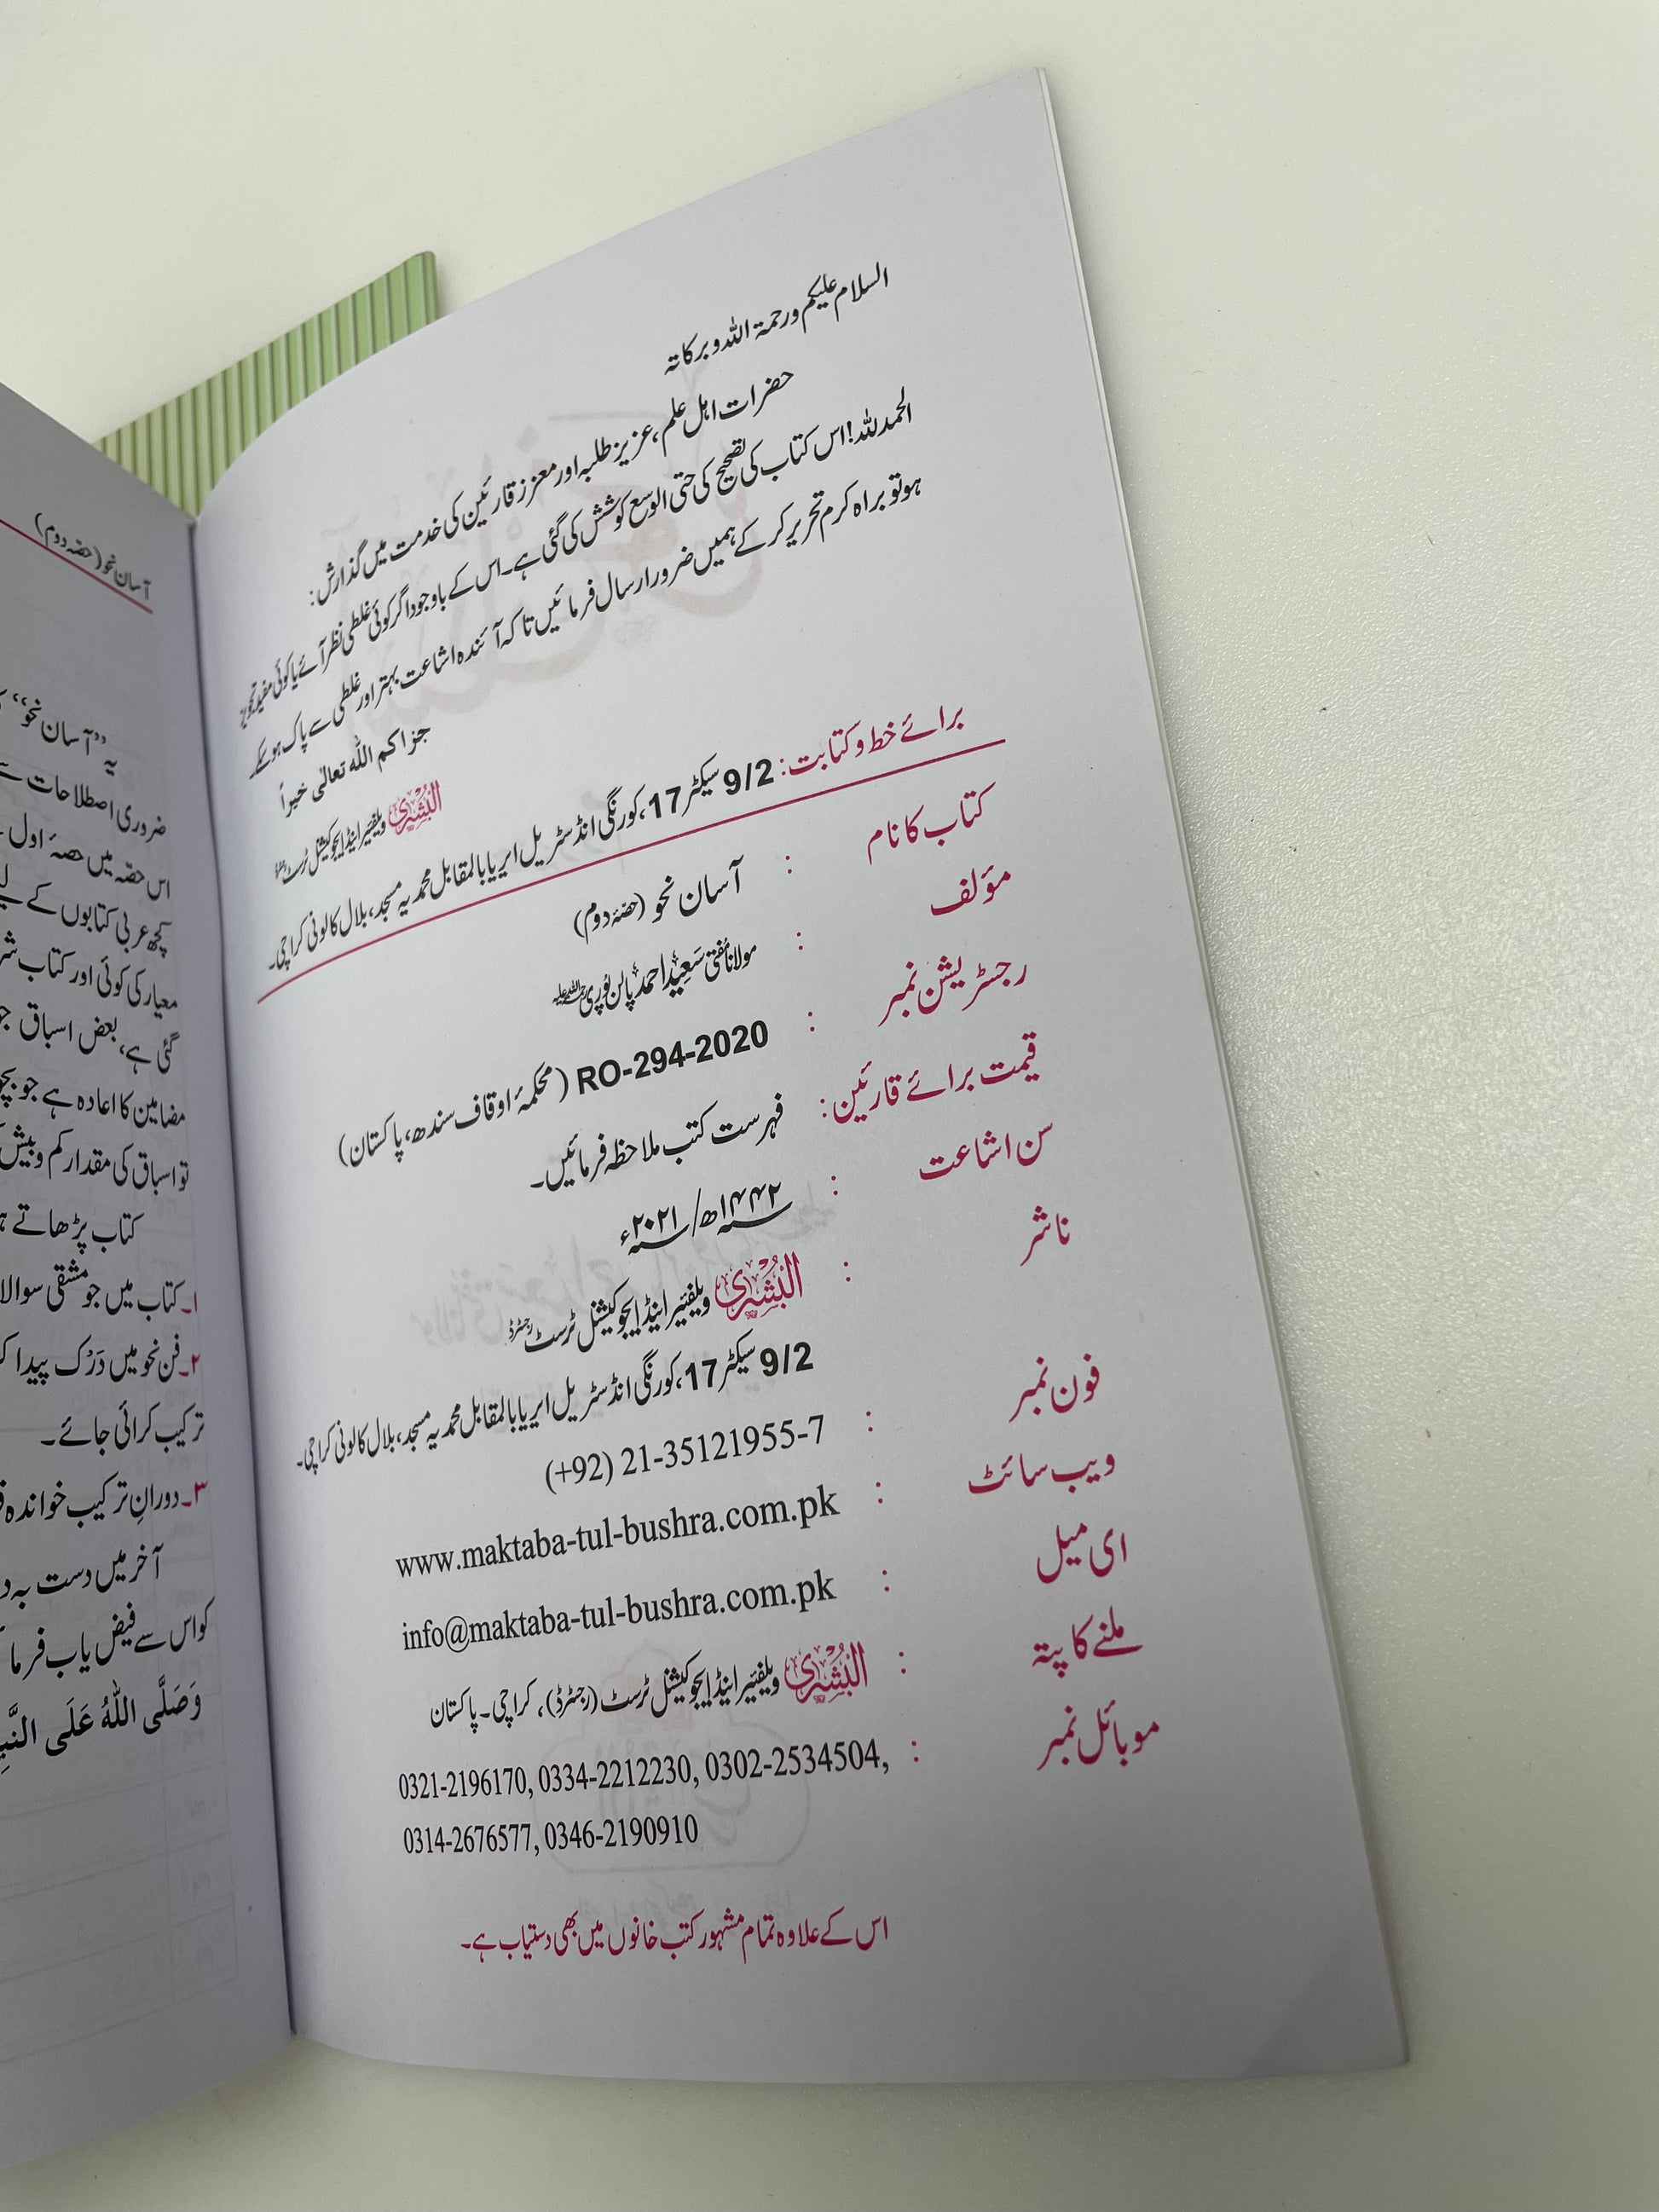 السلام علیکم ورحمۃ اللہ وبرکاتہ
حضرات اہل علم، عزیز طلبہ اور معزز قارئین کی خدمت میں گذارش:
الحمدللہ! اس کتاب کی تصحیح کی حتی الوسع کوشش کی گئی ہے۔ اس کے باوجود اگر کوئی غلطی نظر آئے یا کوئی مفید تجویز
ہو تو براہ کرم تحریر کر کے ہمیں ضرور ارسال فرمائیں تاکہ آئندہ اشاعت بہتر اور غلطی سے پاک ہو سکے۔
جزاکم اللہ تعالٰی خیراً
البُشریٰ ویلفیئر اینڈ ایجوکیشنل ٹرسٹ
برائے خط و کتابت: 9/2 سیکٹر 17، کورنگی انڈسٹریل ایریا بالمقابل محمدیہ مسجد، بلال کالونی کراچی۔
کتاب کا نام : آسان نحو (حصّہ دوم)
مؤلف : مولانا مفتی سَعِید احمد پالن پُوری رحمہ اللہ علیہ
رجسٹریشن نمبر : RO-294-2020 (محکمۂ اوقاف سندھ، پاکستان)
قیمت برائے قارئین : فہرست کتب ملاحظہ فرمائیں۔
سن اشاعت : ۱۴۴۲ھ/ ۲۰۲۱ء
ناشر : البُشریٰ ویلفیئر اینڈ ایجوکیشنل ٹرسٹ رجسٹرڈ
9/2 سیکٹر 17، کورنگی انڈسٹریل ایریا بالمقابل محمدیہ مسجد، بلال کالونی کراچی۔
فون نمبر : (+92) 21-35121955-7
ویب سائٹ : www.maktaba-tul-bushra.com.pk
ای میل : info@maktaba-tul-bushra.com.pk
ملنے کا پتہ : البُشریٰ ویلفیئر اینڈ ایجوکیشنل ٹرسٹ (رجسٹرڈ)، کراچی۔ پاکستان
موبائل نمبر : 0321-2196170, 0334-2212230, 0302-2534504,
0314-2676577, 0346-2190910
اس کے علاوہ تمام مشہور کتب خانوں میں بھی دستیاب ہے۔
آسان نحو (حصّہ دوم)
یہ ”آسان نحو“
ضروری اصطلاحات
اس حصّہ میں حصۂ اول
کچھ عربی کتابوں کے
معیار کی کوئی اور کتاب
گئی ہے، بعض اسباق
مضامین کا اعادہ ہے جو
تو اسباق کی مقدار کم و بیش
کتاب پڑھاتے
۱۔ کتاب میں جو مشقی
۲۔ فن نحو میں دَرْک پیدا
ترکیب کرائی جائے۔
۳۔ دورانِ ترکیب خواندہ
آخر میں دست بہ
کو اس سے فیض یاب فرما
وَصَلَّى اللّٰهُ عَلَى